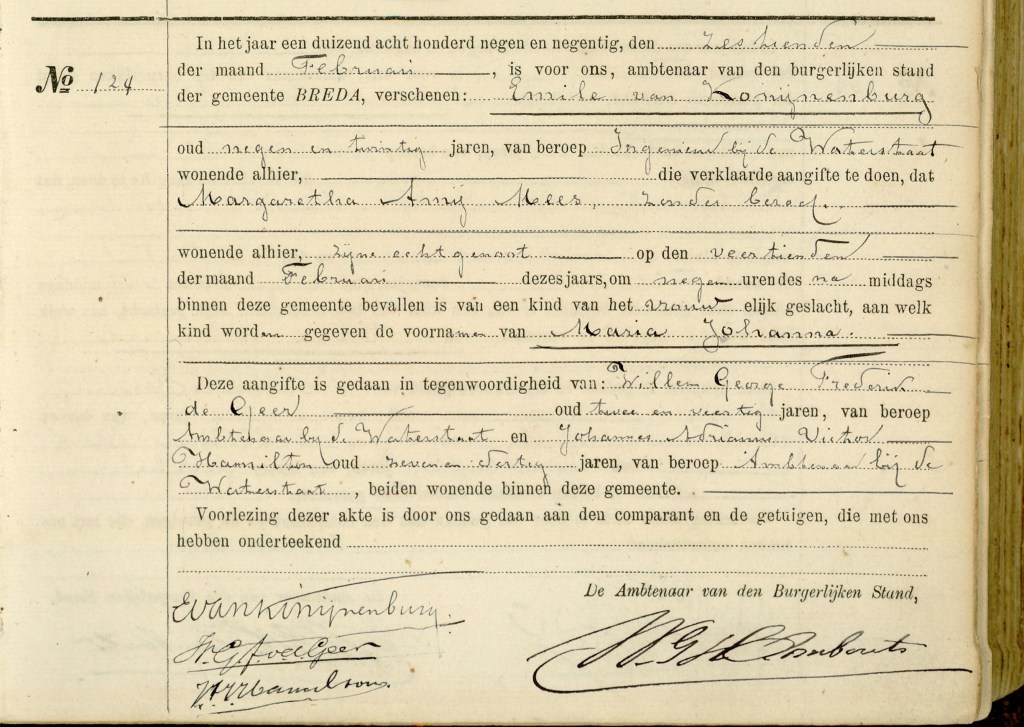 In het jaar een duizend acht honderd negen en negentig, den zestienden
No 124
der maand Februari, is voor ons, ambtenaar van den burgerlijken stand
der gemeente BREDA, verschenen: Emile van Konijnenburg
oud negen en twintig jaren, van beroep Ingenieur bij de Waterstaat,
wonende alhier, die verklaarde aangifte te doen, dat
Margaretha Amij Mees, zonder beroep.
wonende alhier, zijne echtgenoot op den veertienden
der maand Februari dezes jaars, om negen uren des na middags
binnen deze gemeente bevallen is van een kind van het vrouwelijk geslacht, aan welk
kind worden gegeven de voornamen van Maria Johanna.
Deze aangifte is gedaan in tegenwoordigheid van: Willem George Frederik
de Geer oud twee en veertig jaren, van beroep
Ambtenaar bij de Waterstaat en Johannes Adrianus Victor
Hamilton oud zeven en dertig jaren, van beroep Ambtenaar bij de
Waterstaat, beiden wonende binnen deze gemeente.
Voorlezing dezer akte is door ons gedaan aan den comparant en de getuigen, die met ons
hebben onderteekend
De Ambtenaar van den Burgerlijken Stand,
EvanKonijnenburg.